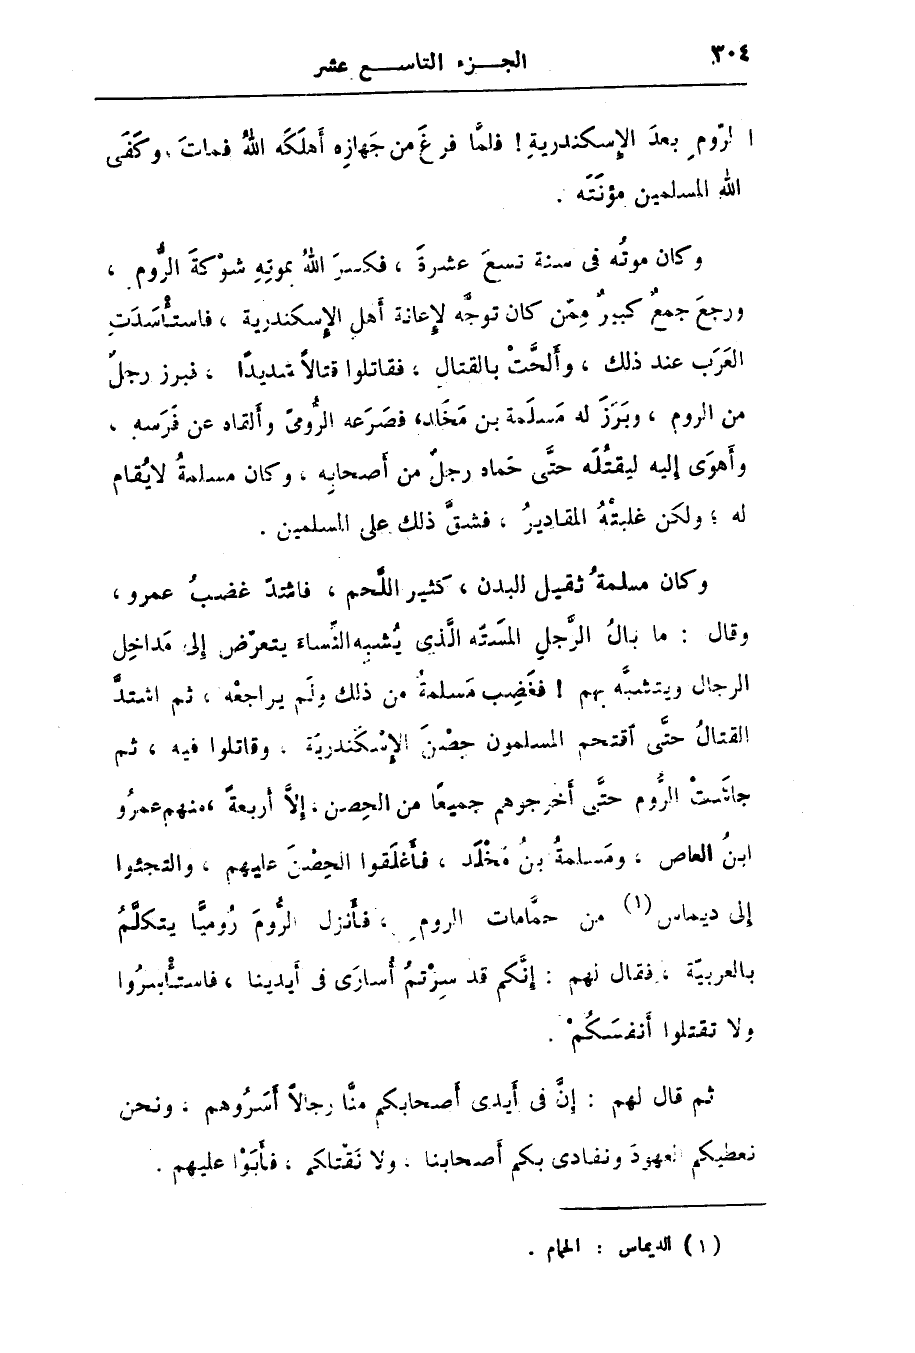 ٣٠٤
الجـــزء التاســـع عشر
الرّوم بعدَ الإِسكندرية! فلمَّا فرغَ من جَهازِه أَهلَكَه اللهُ فمات، وكَفَى
اللهُ المسلمين مؤنَتَه .
وكان موتُه فى سنة تسعَ عشرةَ ، فكسرَ اللهُ بموتِهِ شوْكةَ الرُّوم ،
ورجعَ جمعٌ كبيرٌ مِمّن كان توجَّه لإِعانة أَهلِ الإِسكندرية ، فاستأْسَدَتِ
العَرَب عند ذلك ، وأَلحَّتْ بالقتال ، فقاتلوا قتالاً شديدًا ، فبرز رجلٌ
من الروم ، وبَرَزَ له مَسلَمة بن مَخَلد، فصَرَعه الرُّومىّ وأَلقاه عن فَرَسه ،
وأَهوَى إليه ليقتُلَه حتَّى حَماه رجلٌ من أَصحابِه ، وكان مسلمةُ لايُقام
له ؛ ولكن غلبتْهُ المقاديرُ ، فشقَّ ذلك على المسلمين .
وكان مسلمةُ ثقيل البدن ، كثير اللَّحم ، فاشتدّ غضبُ عمرو ،
وقال : ما بالُ الرَّجلِ المَسْتَه الَّذى يُشبِه النِّساء يتعرّض إلى مَداخِل
الرجال ويتشبَّه بهم ! فغَضِب مَسلمةُ من ذلك ولَم يراجعْه ، ثم اشتدَّ
القتالُ حتَّى اقتحم المسلمون حِصْنَ الإِسْكَندريّة ، وقاتلوا فيه ، ثم
جاشت الرُّوم حتَّى أَخرجوهم جميعًا من الحِصن ، إلاَّ أَربعةً ، منهم عمرُو
ابنُ العاص ، ومَسلمةُ بنُ مُخْلَد ، فأَغلَقوا الحِصْنَ عليهم ، والتجئوا
إلى ديماس(١) من حمَّامات الروم ، فأَنزل الرُّومَ رُوميًّا يتكلَّمُ
بالعربيّة ، فقال لهم : إنَّكم قد صِرْتمُ أُسارَى فى أَيدينا ، فاستأْسِرُوا
ولا تقتلوا أَنفسَكُمْ .
ثم قال لهم : إنَّ فى أَيدى أَصحابكم منَّا رجالاً أَسَرُوهم ، ونحن
نعطيكم العهودَ ونفادى بكم أَصحابنا ، ولا نَقْتلكم ، فأَبَوْا عليهم .
(١) الديماس : الحمام .